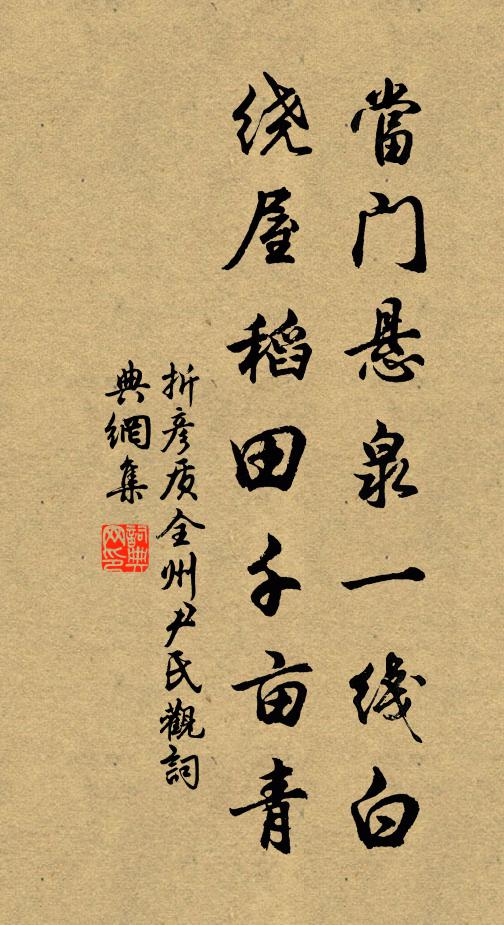 當门悬泉一线白
绕屋稻田千亩青
折彦质全州尹氏觀詞
典網集
詞典
网印